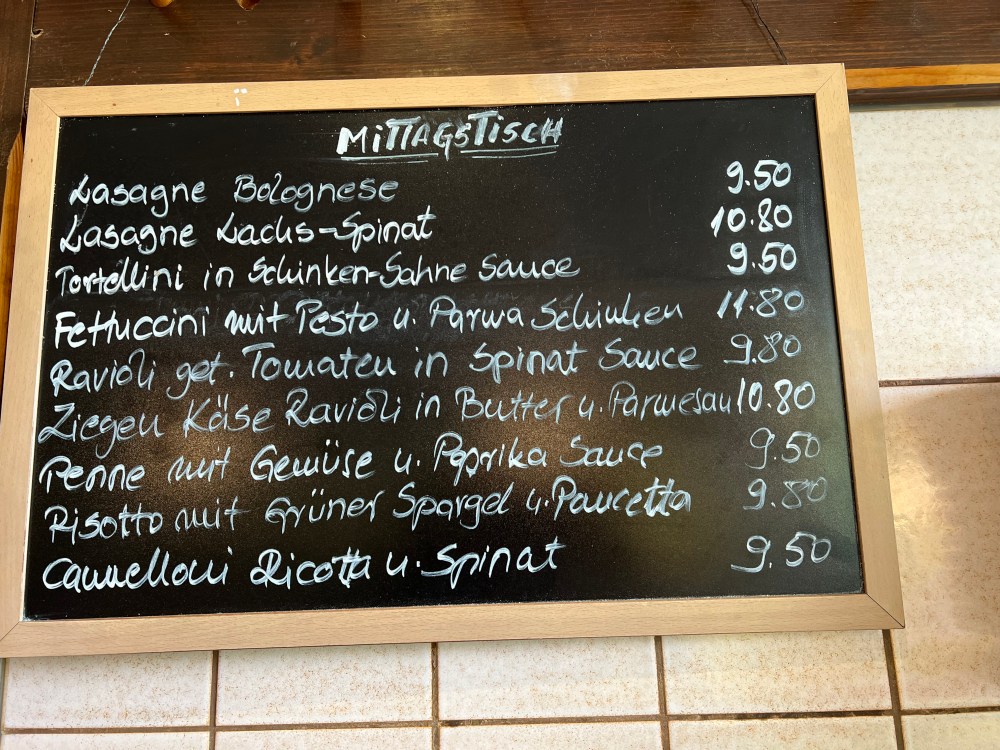 MITTAGSTISCH
Lasagne Bolognese 9.50
Lasagne Lachs-Spinat 10.80
Tortellini in Schinken-Sahne Sauce 9.50
Fettuccini mit Pesto u. Parma Schinken 11.80
Ravioli get. Tomaten in Spinat Sauce 9.80
Ziegen Käse Ravioli in Butter u. Parmesan 10.80
Penne mit Gemüse u. Paprika Sauce 9.50
Risotto mit Grüner Spargel u. Pancetta 9.80
Cannelloni Ricotta u. Spinat 9.50